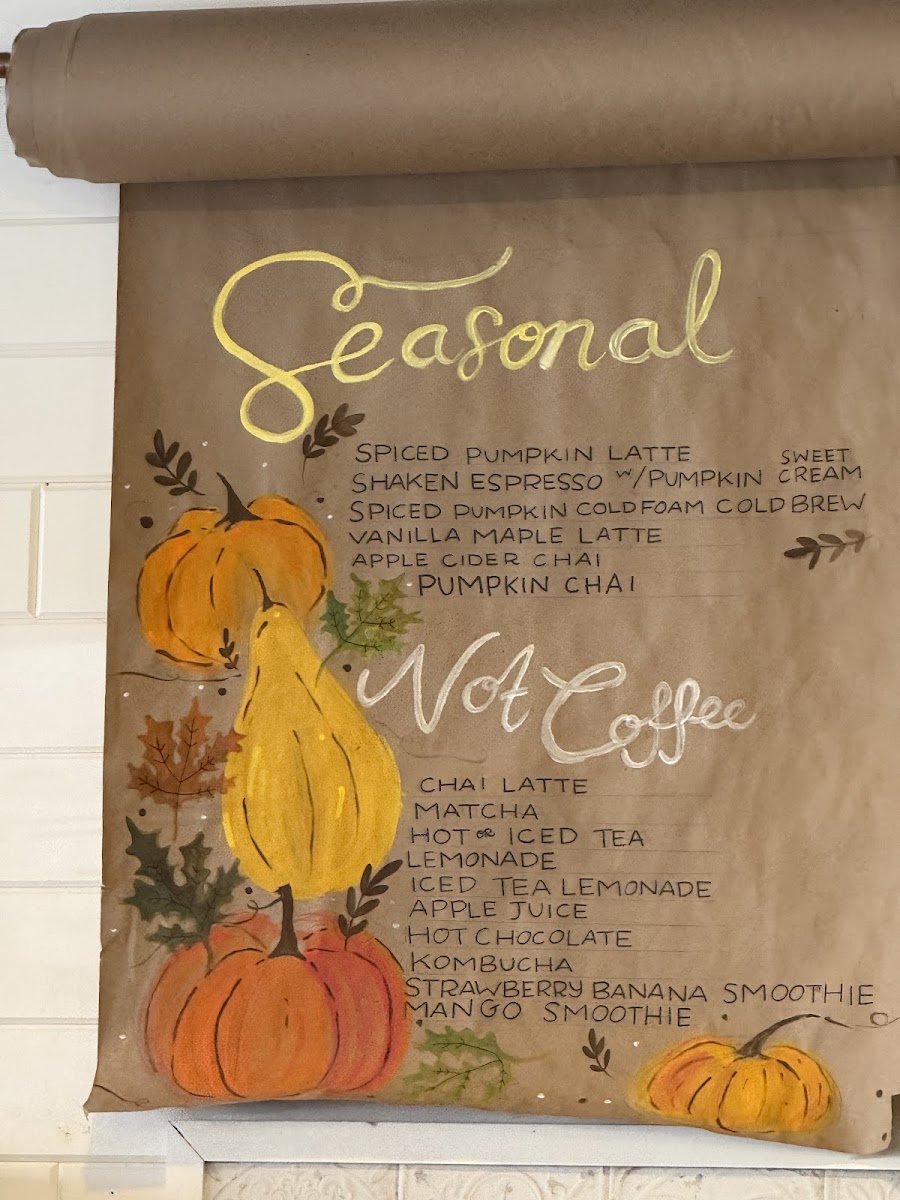 Seasonal
SPICED PUMPKIN LATTE
SHAKEN ESPRESSO w/PUMPKIN SWEET CREAM
SPICED PUMPKIN COLD FOAM COLD BREW
VANILLA MAPLE LATTE
APPLE CIDER CHAI
PUMPKIN CHAI
Not Coffee
CHAI LATTE
MATCHA
HOT OR ICED TEA
LEMONADE
ICED TEA LEMONADE
APPLE JUICE
HOT CHOCOLATE
KOMBUCHA
STRAWBERRY BANANA SMOOTHIE
MANGO SMOOTHIE